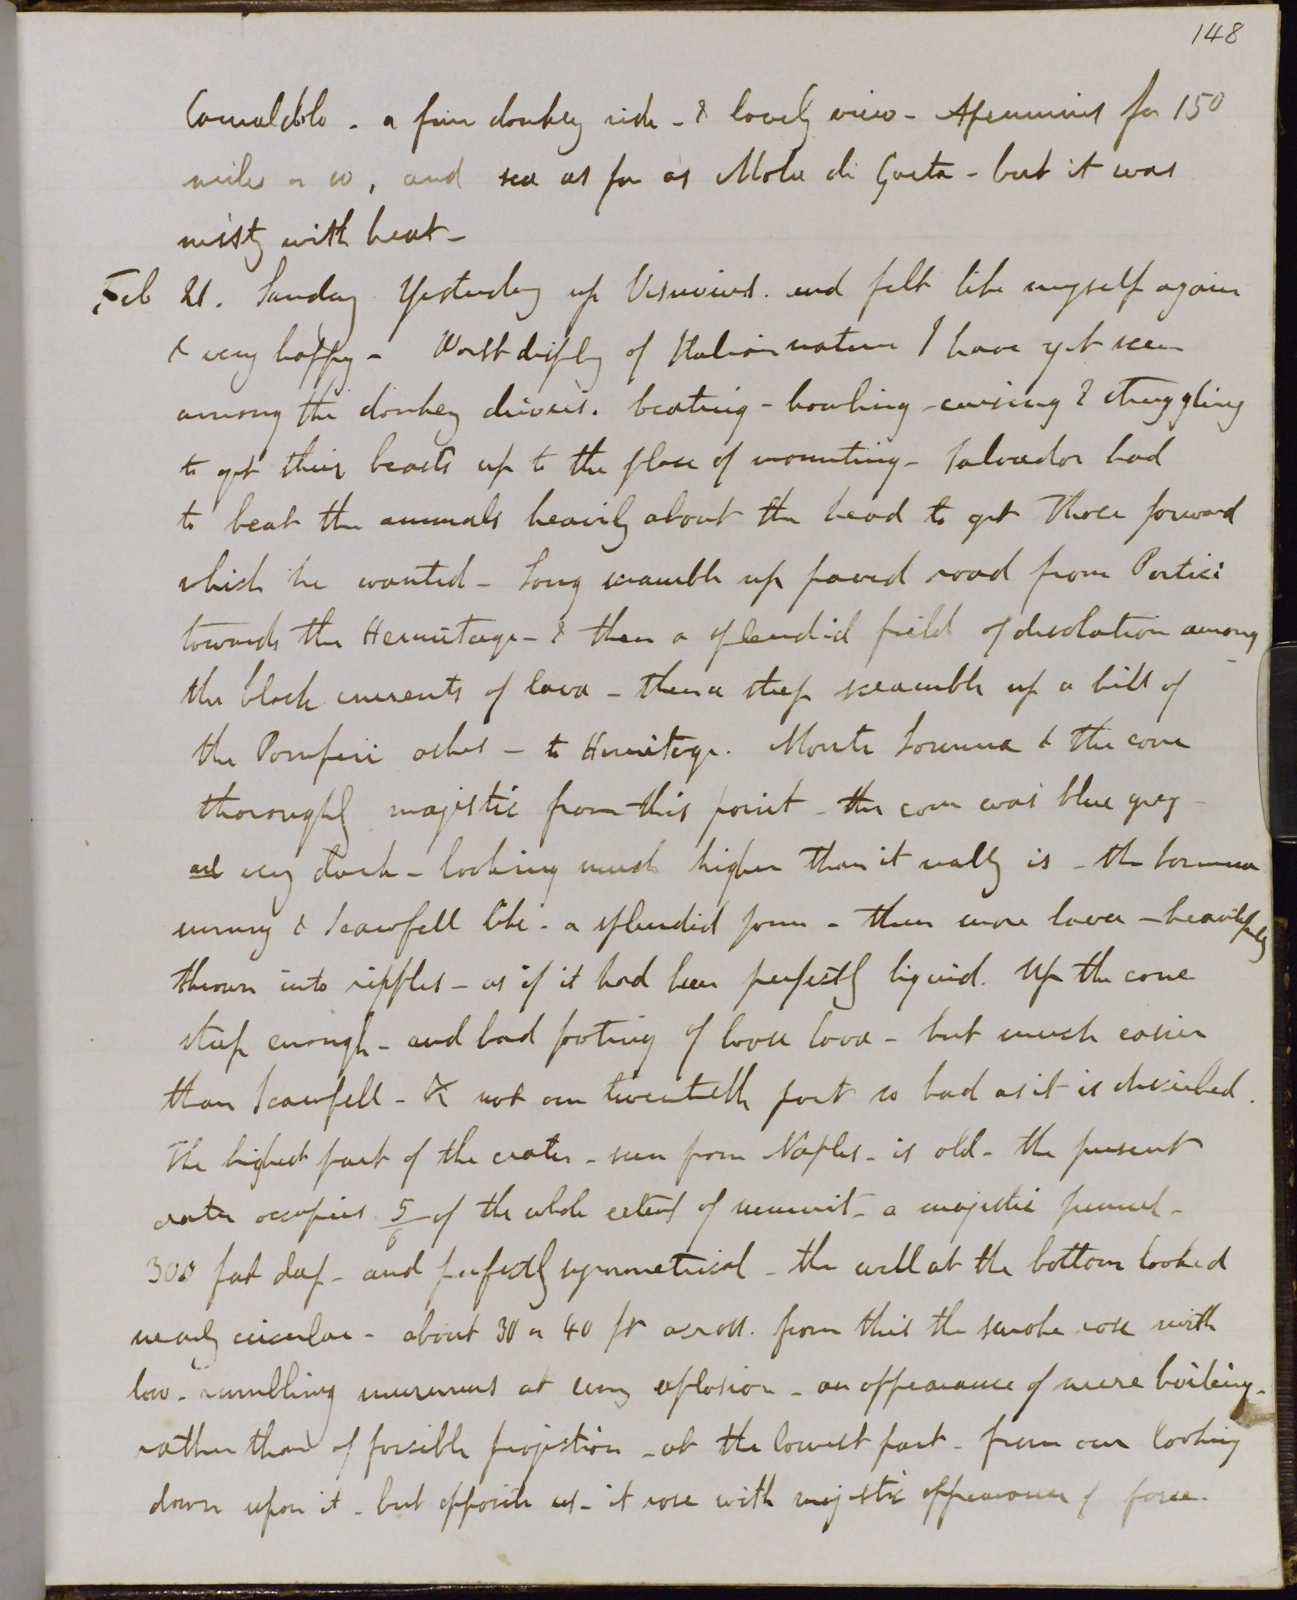 148
Camaldoli - a fine donkey ride - & lovely view - Apennines for 150
miles or so, and sea as far as Mola di Gaeta - but it was
misty with heat -
Feb 21. Sunday Yesterday up Vesuvius. and felt like myself again
& very happy - Worst display of Italian nature I have yet seen
among the donkey drivers. beating - howling - cursing & struggling
to get their beasts up to the place of mounting - Salvador had
to beat the animals heavily about the head to get those forward
which he wanted - Long scramble up paved road from Portici
towards the Hermitage - & then a splendid field of desolation among
the black currents of lava - then a steep scramble up a hill of
the Pompeii ashes - to Hermitage. Monte Somma & the cone
thoroughly majestic from this point - the cone was blue grey -
and very dark - looking much higher than it really is - the Somma
& Scawfell like - a splendid form - then more lava - beautifully
thrown into ripples - as if it had been perfectly liquid. Up the cone
steep enough - and bad footing of loose lava - but much easier
than Scawfell - & not one twentieth part so bad as it is described.
The highest part of the crater - seen from Naples - is old - the present
crater occupies 5/6 of the whole extent of summit - a majestic funnel -
300 feet deep - and perfectly symmetrical - the well at the bottom looked
nearly circular - about 30 or 40 ft across. from this the smoke rose with
low - rumbling murmurs at every explosion - an appearance of mere boiling -
rather than of forcible projection - at the lowest part - from our looking
down upon it - but opposite us - it rose with majestic appearance of force.